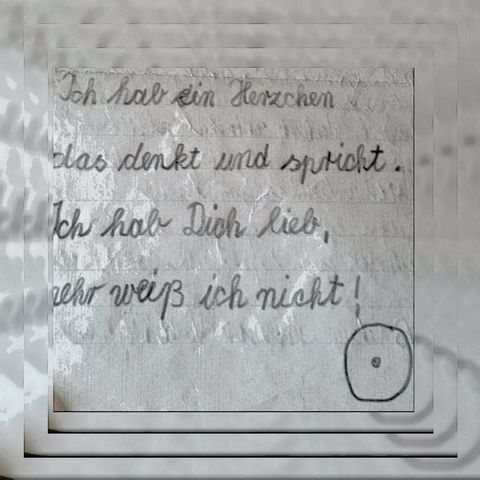 Ich hab ein Herzchen
das denkt und spricht.
Ich hab Dich lieb,
mehr weiß ich nicht!